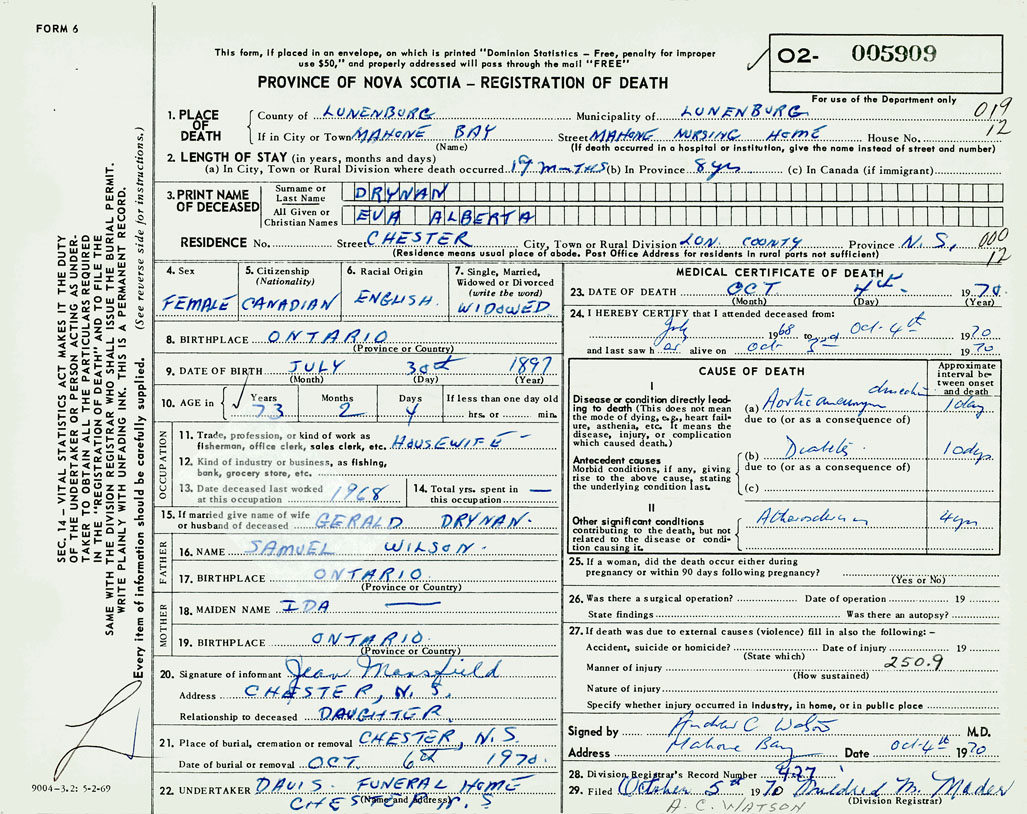 FORM 6
This form, if placed in an envelope, on which is printed "Dominion Statistics – Free, penalty for improper
use $50," and properly addressed will pass through the mail "FREE"
O2- 005909
PROVINCE OF NOVA SCOTIA – REGISTRATION OF DEATH
For use of the Department only
019
12
1. PLACE OF DEATH
County of LUNENBURG Municipality of LUNENBURG
If in City or Town MAHONE BAY Street MAHONE NURSING HOME House No.
(Name) (If death occurred in a hospital or institution, give the name instead of street and number)
2. LENGTH OF STAY (in years, months and days)
(a) In City, Town or Rural Division where death occurred 19 months (b) In Province 8 yrs (c) In Canada (if immigrant)
3. PRINT NAME OF DECEASED
Surname or Last Name DRYNAN
All Given or Christian Names EVA ALBERTA
RESIDENCE No. Street CHESTER City, Town or Rural Division LUN. COUNTY Province N.S. 000
(Residence means usual place of abode. Post Office Address for residents in rural parts not sufficient) 12
4. Sex
FEMALE
5. Citizenship
(Nationality)
CANADIAN
6. Racial Origin
ENGLISH.
7. Single, Married,
Widowed or Divorced
(write the word)
WIDOWED
8. BIRTHPLACE ONTARIO
(Province or Country)
9. DATE OF BIRTH JULY 30th 1897
(Month) (Day) (Year)
10. AGE in
Years Months Days If less than one day old
73 2 4 hrs. or min.
OCCUPATION
11. Trade, profession, or kind of work as
fisherman, office clerk, sales clerk, etc. HOUSEWIFE –
12. Kind of industry or business, as fishing,
bank, grocery store, etc.
13. Date deceased last worked
at this occupation 1968
14. Total yrs. spent in
this occupation —
15. If married give name of wife
or husband of deceased GERALD DRYNAN.
FATHER
16. NAME SAMUEL WILSON.
17. BIRTHPLACE ONTARIO
(Province or Country)
MOTHER
18. MAIDEN NAME IDA —
19. BIRTHPLACE ONTARIO.
(Province or Country)
20. Signature of informant Jean Mansfield
Address CHESTER, N.S.
Relationship to deceased DAUGHTER.
21. Place of burial, cremation or removal CHESTER, N.S.
Date of burial or removal OCT. 6th 1970.
22. UNDERTAKER DAVIS FUNERAL HOME
(Name and Address) CHESTER N.S
MEDICAL CERTIFICATE OF DEATH
23. DATE OF DEATH OCT 4th 1970.
(Month) (Day) (Year)
24. I HEREBY CERTIFY that I attended deceased from:
July 1968 to Oct. 4th 1970
and last saw h er alive on Oct 3rd 1970
CAUSE OF DEATH
Approximate
interval be-
tween onset
and death
I
Disease or condition directly lead-
ing to death (This does not mean
the mode of dying, e.g., heart fail-
ure, asthenia, etc. It means the
disease, injury, or complication
which caused death.)
(a) Aortic aneurysm 1 day
due to (or as a consequence of)
Antecedent causes
Morbid conditions, if any, giving
rise to the above cause, stating
the underlying condition last.
(b) Diabetes 10 dys.
due to (or as a consequence of)
(c)
II
Other significant conditions
contributing to the death, but not
related to the disease or condi-
tion causing it.
4 yrs
25. If a woman, did the death occur either during
pregnancy or within 90 days following pregnancy?
(Yes or No)
26. Was there a surgical operation? Date of operation 19
State findings Was there an autopsy?
27. If death was due to external causes (violence) fill in also the following: –
Accident, suicide or homicide? Date of injury 19
(State which)
250.9
Manner of injury
(How sustained)
Nature of injury
Specify whether injury occurred in industry, in home, or in public place
Signed by Andrew C Watson M.D.
Address Mahone Bay Date Oct-4th 1970
28. Division Registrar's Record Number 927
29. Filed October 5th 1970 Mildred M. Mader
(Division Registrar)
A. C. WATSON
SEC. 14 – VITAL STATISTICS ACT MAKES IT THE DUTY
OF THE UNDERTAKER OR PERSON ACTING AS UNDER-
TAKER TO OBTAIN ALL THE PARTICULARS REQUIRED
IN THE "REGISTRATION OF DEATH" AND TO FILE THE
SAME WITH THE DIVISION REGISTRAR WHO SHALL ISSUE THE BURIAL PERMIT.
WRITE PLAINLY WITH UNFADING INK. THIS IS A PERMANENT RECORD.
Every item of information should be carefully supplied. (See reverse side for instructions.)
9004-3.2: 5-2-69